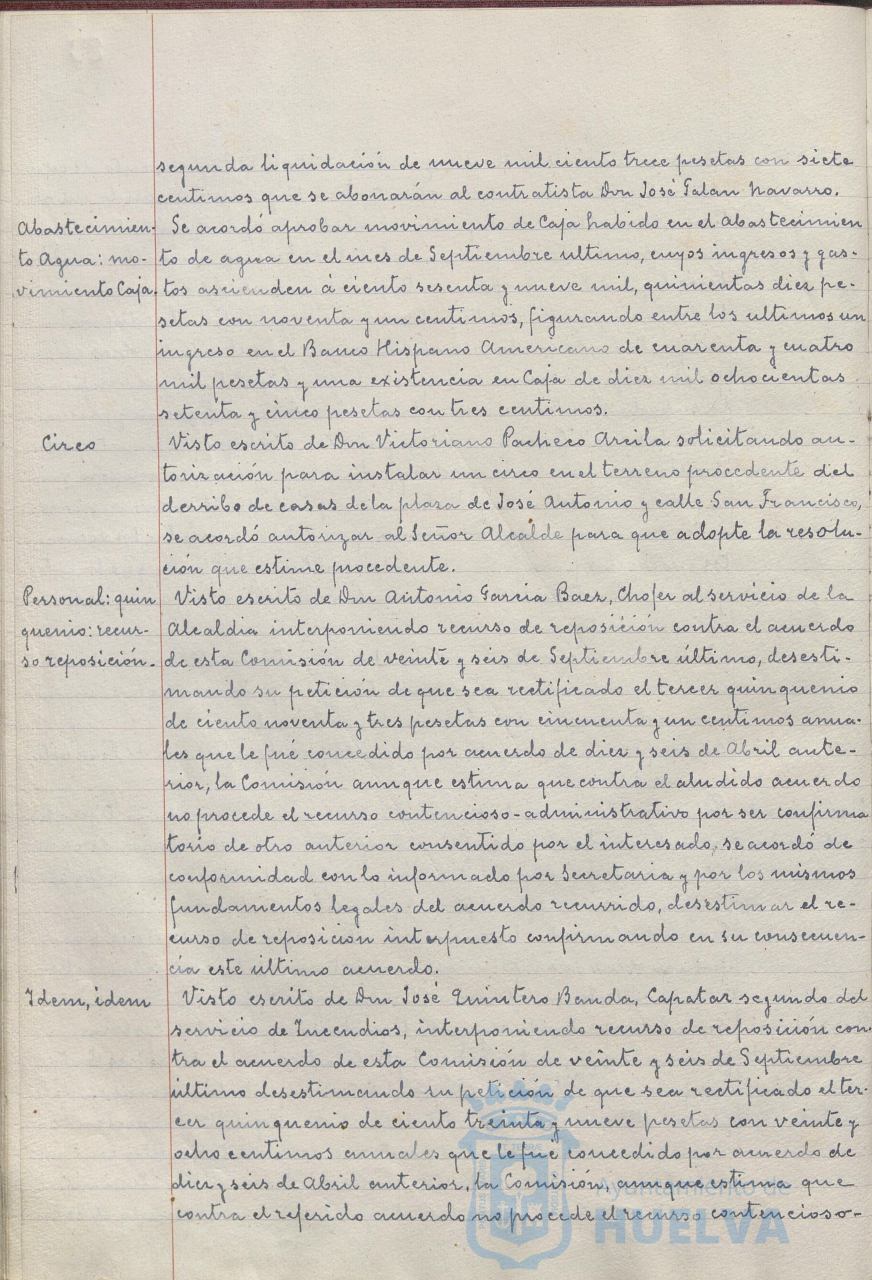 segunda liquidación de nueve mil ciento trece pesetas con siete
centimos que se abonarán al contratista Don José Galan Navarro.
Abastecimien-
to Agua: mo-
vimiento Caja.
Se acordó aprobar movimiento de Caja habido en el Abastecimien
to de agua en el mes de Septiembre ultimo, cuyos ingresos y gas-
tos ascienden á ciento sesenta y nueve mil, quinientas diez pe-
setas con noventa y un centimos, figurando entre los ultimos un
ingreso en el Banco Hispano Americano de cuarenta y cuatro
mil pesetas y una existencia en Caja de diez mil ochocientas
setenta y cinco pesetas con tres centimos.
Circo
Visto escrito de Don Victoriano Pacheco Arcila solicitando au-
torización para instalar un circo en el terreno procedente del
derribo de casas de la plaza de José Antonio y calle San Francisco,
se acordó autorizar al Señor Alcalde para que adopte la resolu-
ción que estime procedente.
Personal: quin
quenio: recur-
so reposición.
Visto escrito de Don Antonio Garcia Baez, Chofer al servicio de la
Alcaldia interponiendo recurso de reposición contra el acuerdo
de esta Comisión de veinte y seis de Septiembre último, desesti-
mando su petición de que sea rectificado el tercer quinquenio
de ciento noventa y tres pesetas con cincuenta y un centimos anua-
les que le fué concedido por acuerdo de diez y seis de Abril ante-
rior, la Comisión aunque estima que contra el aludido acuerdo
no procede el recurso contencioso-administrativo por ser confirma
torio de otro anterior consentido por el interesado, se acordó de
conformidad con lo informado por Secretaria y por los mismos
fundamentos legales del acuerdo recurrido, desestimar el re-
curso de reposición interpuesto confirmando en su consecuen-
cia este último acuerdo.
Idem, idem
Visto escrito de Don José Quintero Banda, Capataz segundo del
servicio de Incendios, interponiendo recurso de reposición con-
tra el acuerdo de esta Comisión de veinte y seis de Septiembre
último desestimando su petición de que sea rectificado el ter-
cer quinquenio de ciento treinta y nueve pesetas con veinte y
ocho centimos anuales que le fué concedido por acuerdo de
diez y seis de Abril anterior, la Comisión, aunque estima que
contra el referido acuerdo no procede el recurso contencioso-
Ayuntamiento de
HUELVA